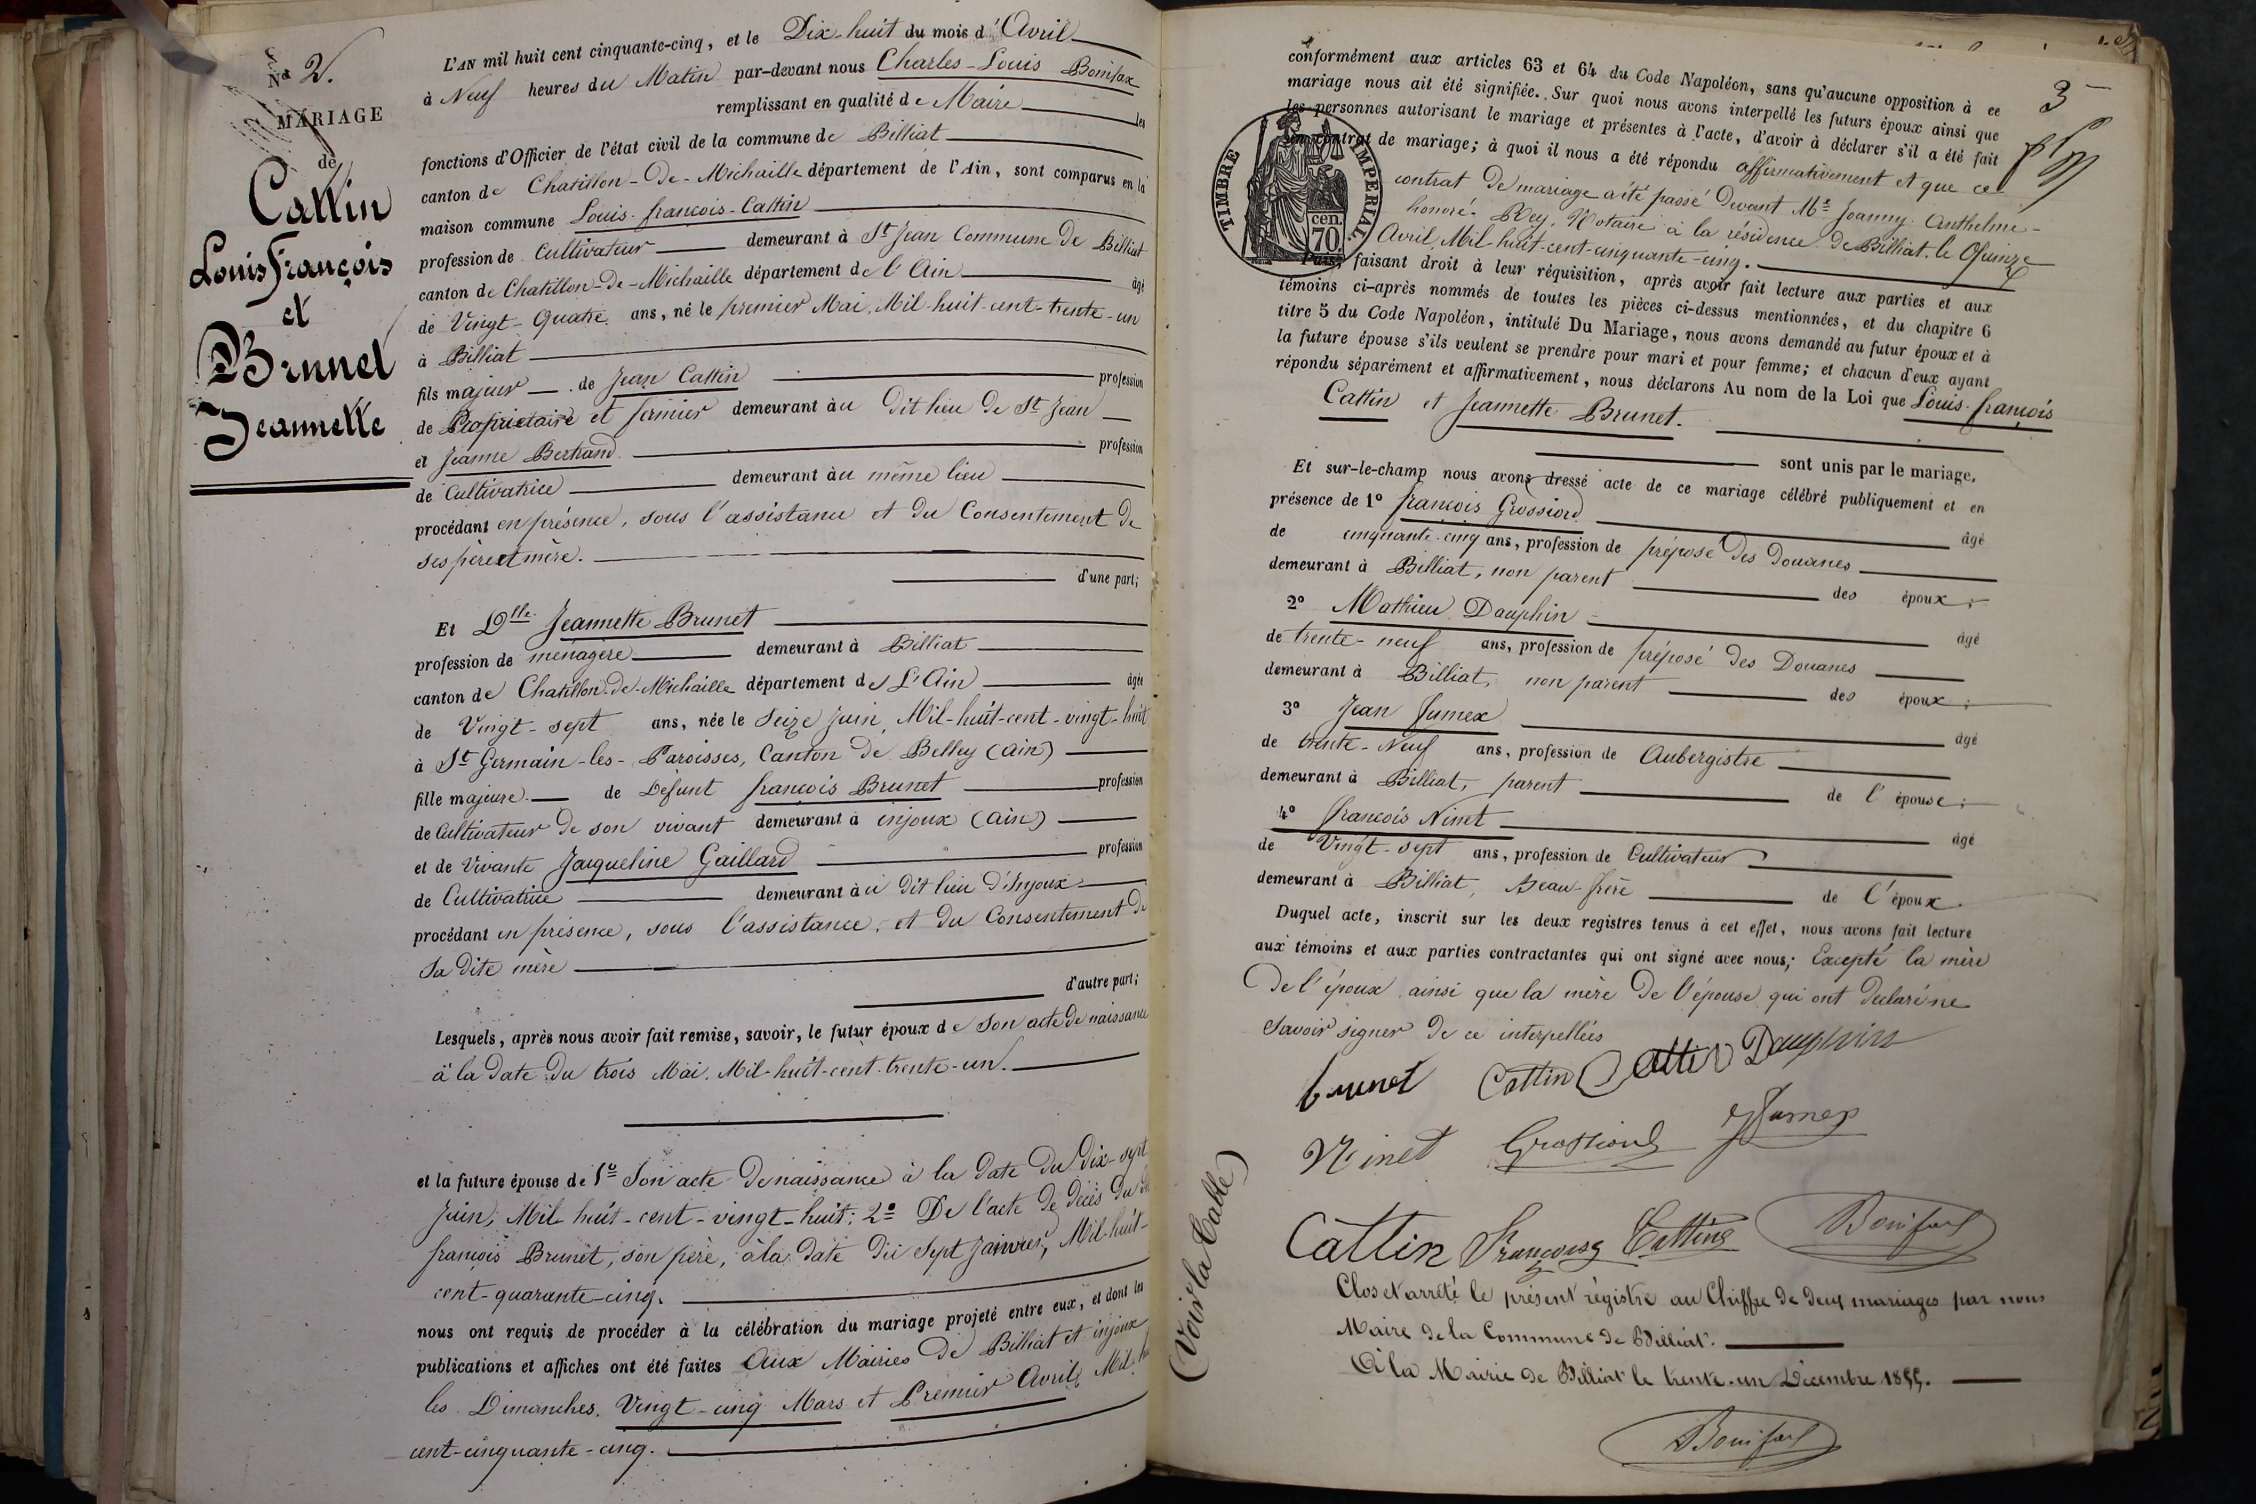 Nº 2.
MARIAGE
de
Cattin
Louis François
et
Brunet
Jeannette
L'AN mil huit cent cinquante-cinq, et le Dix-huit du mois d'Avril
à Neuf heures du Matin par-devant nous Charles-Louis Bonifax
remplissant en qualité de Maire les
fonctions d'Officier de l'état civil de la commune de Billiat
canton de Chatillon-de-Michaille département de l'Ain, sont comparus en la
maison commune Louis-françois-Cattin
profession de Cultivateur demeurant à St Jean Commune de Billiat
canton de Chatillon-de-Michaille département de l'Ain âgé
de Vingt-Quatre ans, né le premier Mai, Mil-huit-cent-trente-un
à Billiat
fils majeur de Jean Cattin profession
de Propriétaire et fermier demeurant àu dit lieu de St Jean
et Jeanne Bertrand profession
de Cultivatrice demeurant àu même lieu
procédant en présence, sous l'assistance et du Consentement de
ses père et mère.
d'une part;
Et Dlle Jeannette Brunet
profession de ménagère demeurant à Billiat
canton de Chatillon-de-Michaille département de L'Ain âgée
de Vingt-sept ans, née le Seize Juin, Mil-huit-cent-vingt-huit
à St Germain-les-Paroisses, Canton de Belley (Ain)
fille majeure de Défunt françois Brunet profession
de Cultivateur de son vivant demeurant à injoux (Ain)
et de Vivante Jacqueline Gaillard profession
de Cultivatrice demeurant àu dit lieu d'Injoux
procédant en présence, sous l'assistance, et du Consentement de
sa dite mère
d'autre part;
Lesquels, après nous avoir fait remise, savoir, le futur époux de Son acte de naissance
à la date du trois Mai, Mil-huit-cent-trente-un.
et la future épouse de 1º Son acte de naissance à la date du dix-sept
Juin, Mil-huit-cent-vingt-huit; 2º De l'acte de décès du
françois Brunet, son père, à la date du sept Janvier, Mil-huit-
cent-quarante-cinq.
nous ont requis de procéder à la célébration du mariage projeté entre eux, et dont les
publications et affiches ont été faites Aux Mairies de Billiat et injoux
les Dimanches, Vingt-cinq Mars et Premier Avril, Mil-
cent-cinquante-cinq.
3
conformément aux articles 63 et 64 du Code Napoléon, sans qu'aucune opposition à ce
mariage nous ait été signifiée. Sur quoi nous avons interpellé les futurs époux ainsi que
les personnes autorisant le mariage et présentes à l'acte, d'avoir à déclarer s'il a été fait
un contrat de mariage; à quoi il nous a été répondu affirmativement et que ce
contrat de mariage a été passé devant Me Joanny-Anthelme-
honoré-Rey, Notaire à la résidence de Billiat, le Quinze
Avril, Mil-huit-cent-cinquante-cinq.
TIMBRE IMPERIAL.
cen.
70.
Puis, faisant droit à leur réquisition, après avoir fait lecture aux parties et aux
témoins ci-après nommés de toutes les pièces ci-dessus mentionnées, et du chapitre 6
titre 5 du Code Napoléon, intitulé Du Mariage, nous avons demandé au futur époux et à
la future épouse s'ils veulent se prendre pour mari et pour femme; et chacun d'eux ayant
répondu séparément et affirmativement, nous déclarons Au nom de la Loi que Louis-françois
Cattin et Jeannette Brunet.
sont unis par le mariage.
Et sur-le-champ nous avons dressé acte de ce mariage célébré publiquement et en
présence de 1º françois Grossiord âgé
de cinquante-cinq ans, profession de préposé des Douanes
demeurant à Billiat, non parent des époux;
2º Mathieu Dauphin âgé
de trente-neuf ans, profession de préposé des Douanes
demeurant à Billiat, non parent des époux;
3º Jean Jumex âgé
de trente-Neuf ans, profession de Aubergiste
demeurant à Billiat, parent de l'épouse;
4º françois Ninet âgé
de Vingt-sept ans, profession de Cultivateur
demeurant à Billiat, Beau-frère de l'époux.
Duquel acte, inscrit sur les deux registres tenus à cet effet, nous avons fait lecture
aux témoins et aux parties contractantes qui ont signé avec nous, Excepté la mère
De l'époux ainsi que la mère de l'épouse qui ont declaré ne
Savoir signer de ce interpellées
brunet Cattin Cattin Dauphin
Ninet Grossiord JJumex
Cattin Françoise Cattin Bonifax
(Voir la Table)
Clos et arrêté le présent régistre au Chiffre de deux mariages par nous
Maire de la Commune de Billiat.
A la Mairie de Billiat le trente-un Décembre 1855.
Bonifax